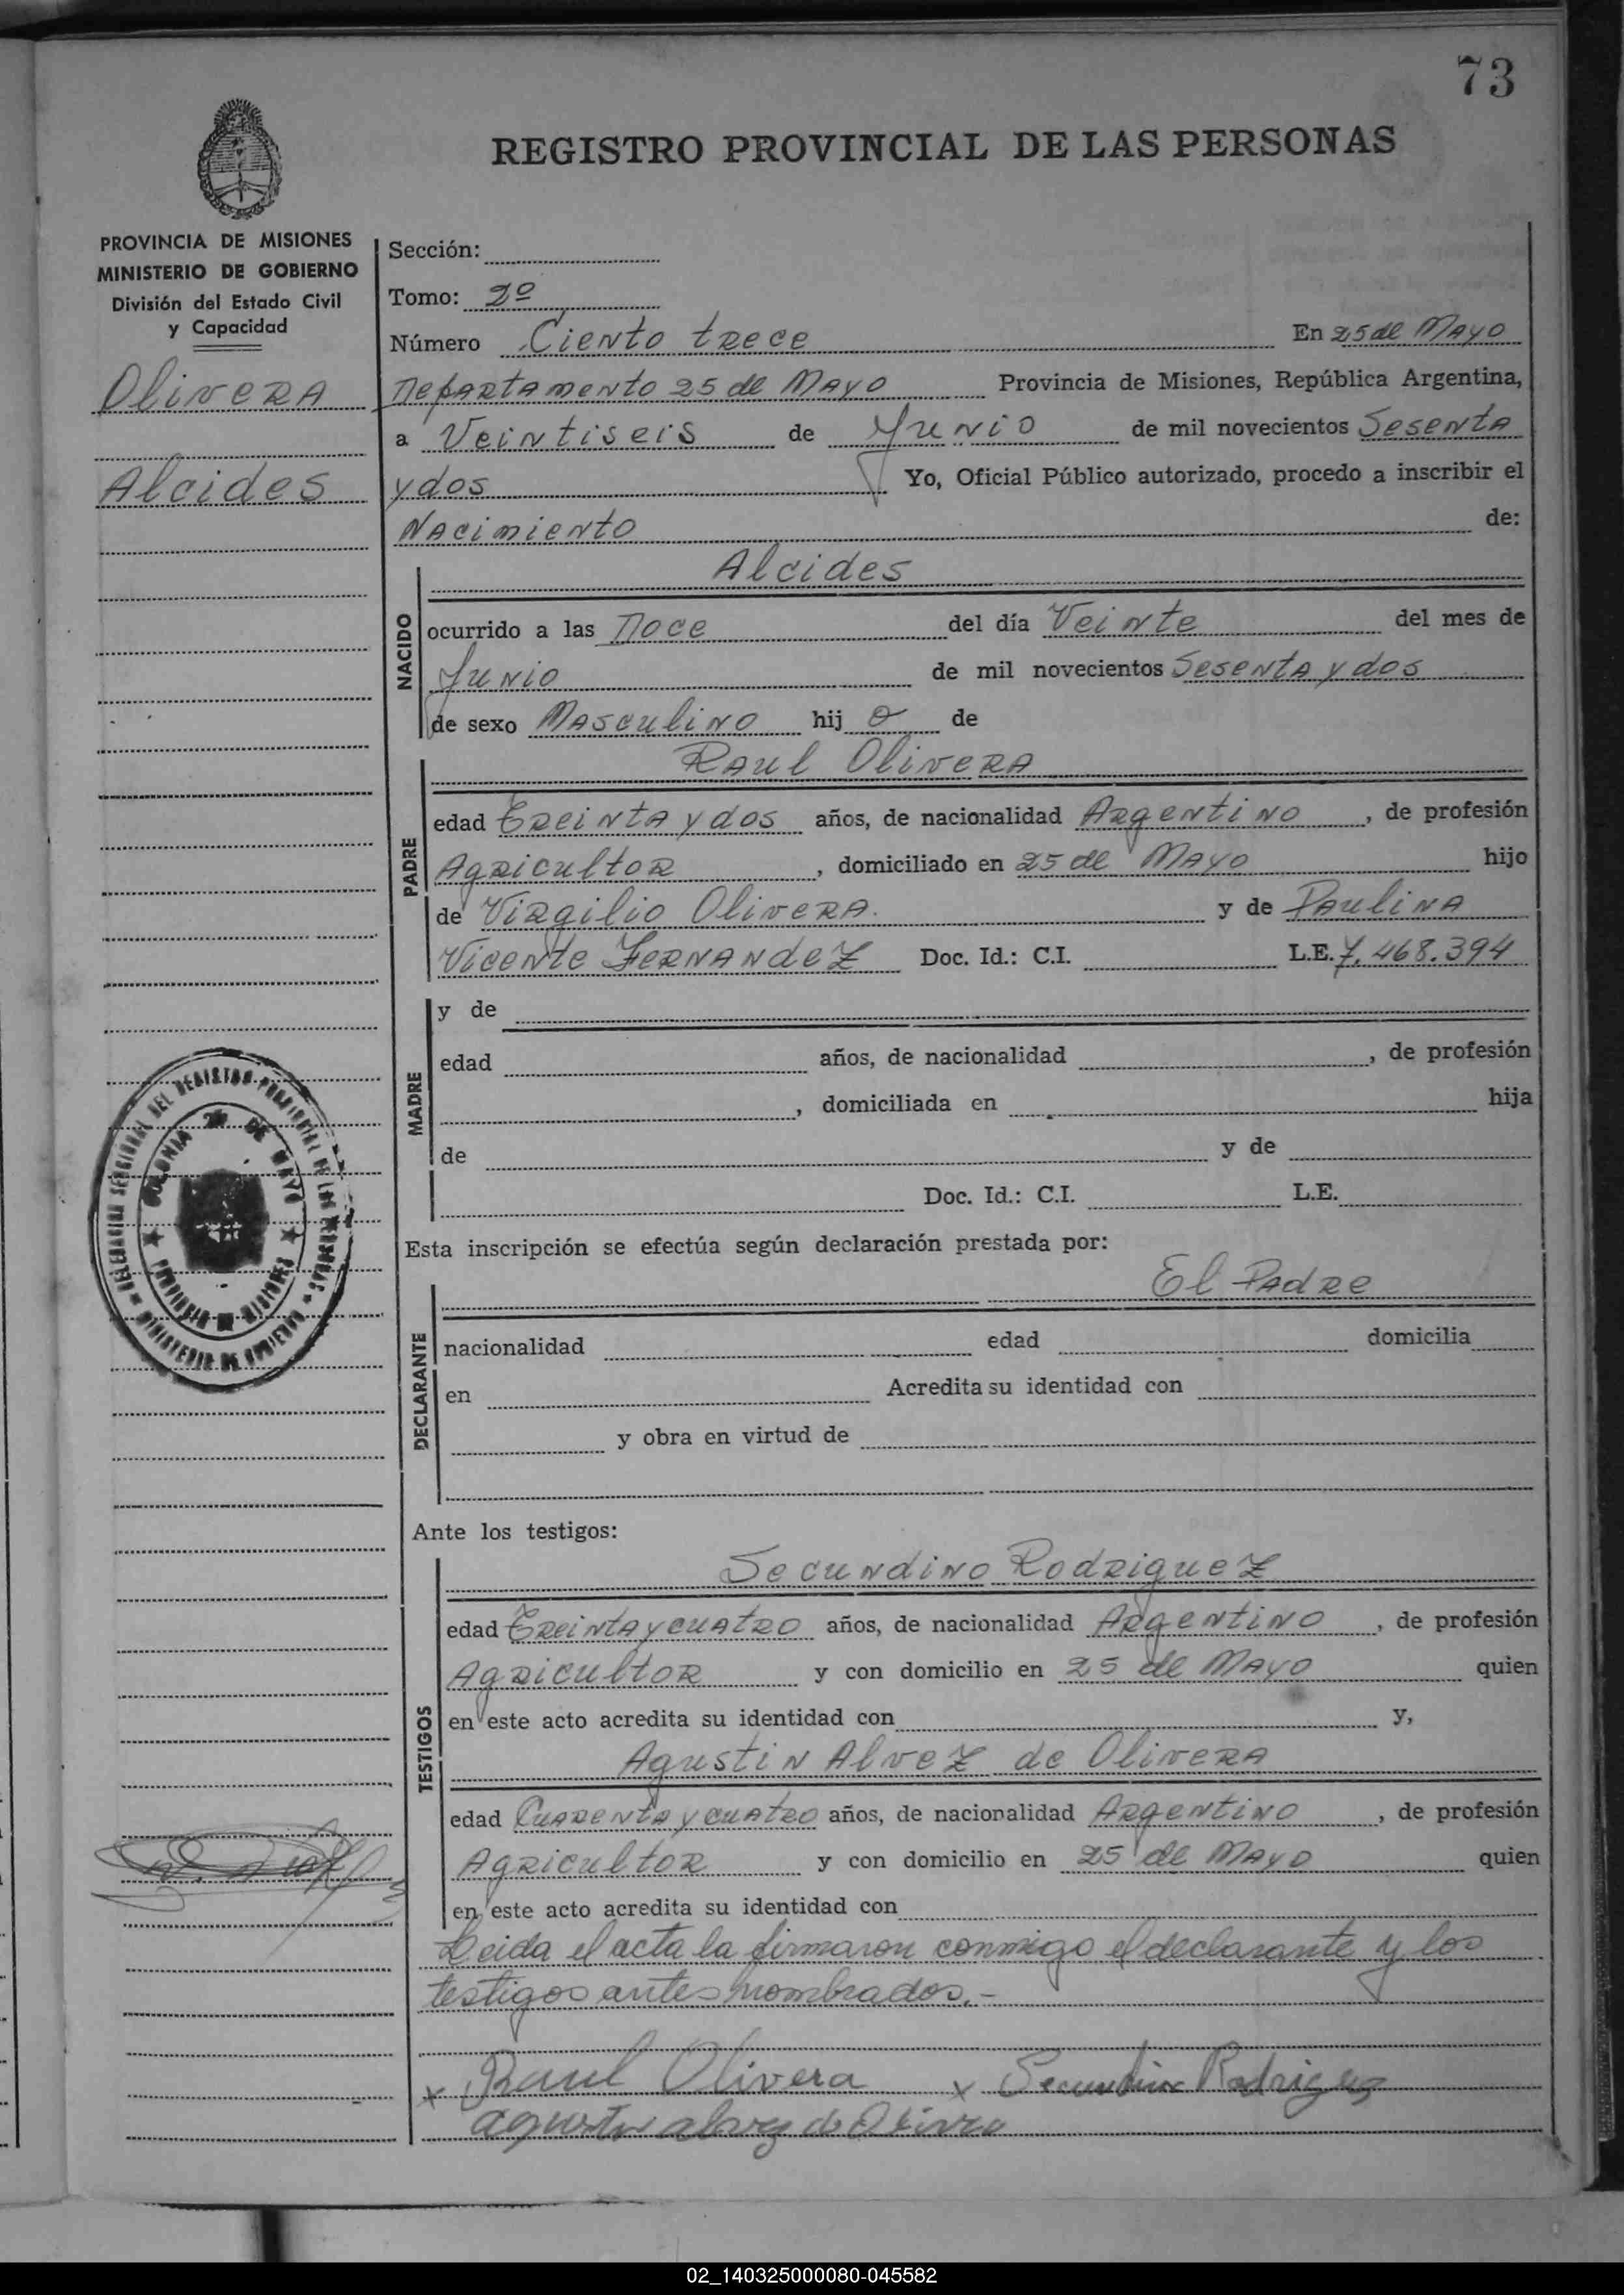 73
REGISTRO PROVINCIAL DE LAS PERSONAS
PROVINCIA DE MISIONES
MINISTERIO DE GOBIERNO
División del Estado Civil
y Capacidad
Olivera
Alcides
Sección:
Tomo: 2º
Número Ciento trece En 25 de Mayo
Departamento 25 de Mayo Provincia de Misiones, República Argentina,
a Veintiseis de Junio de mil novecientos Sesenta
y dos Yo, Oficial Público autorizado, procedo a inscribir el
Nacimiento de:
NACIDO
Alcides
ocurrido a las Doce del día Veinte del mes de
Junio de mil novecientos Sesenta y dos
de sexo Masculino hij o de
PADRE
Raul Olivera
edad Treinta y dos años, de nacionalidad Argentino, de profesión
Agricultor, domiciliado en 25 de Mayo hijo
de Virgilio Olivera. y de Paulina
Vicente Fernandez Doc. Id.: C.I. L.E. 7.468.394
MADRE
y de
edad años, de nacionalidad , de profesión
, domiciliada en hija
de y de
Doc. Id.: C.I. L.E.
Esta inscripción se efectúa según declaración prestada por:
DECLARANTE
El Padre
nacionalidad edad domicilia
en Acredita su identidad con
y obra en virtud de
Ante los testigos:
TESTIGOS
Secundino Rodriguez
edad Treinta y cuatro años, de nacionalidad Argentino, de profesión
Agricultor y con domicilio en 25 de Mayo quien
en este acto acredita su identidad con y,
Agustin Alvez de Olivera
edad Cuarenta y cuatro años, de nacionalidad Argentino, de profesión
Agricultor y con domicilio en 25 de Mayo quien
en este acto acredita su identidad con
Leida el acta la firmaron conmigo el declarante y los
testigos antes nombrados.-
x Raul Olivera x Secundino Rodriguez
agustin alvez de Olivera
DEL REGISTRO PROVINCIAL DE LAS PERSONAS
MINISTERIO DE GOBIERNO
COLONIA 25 DE MAYO
PROVINCIA DE MISIONES
02_140325000080-045582